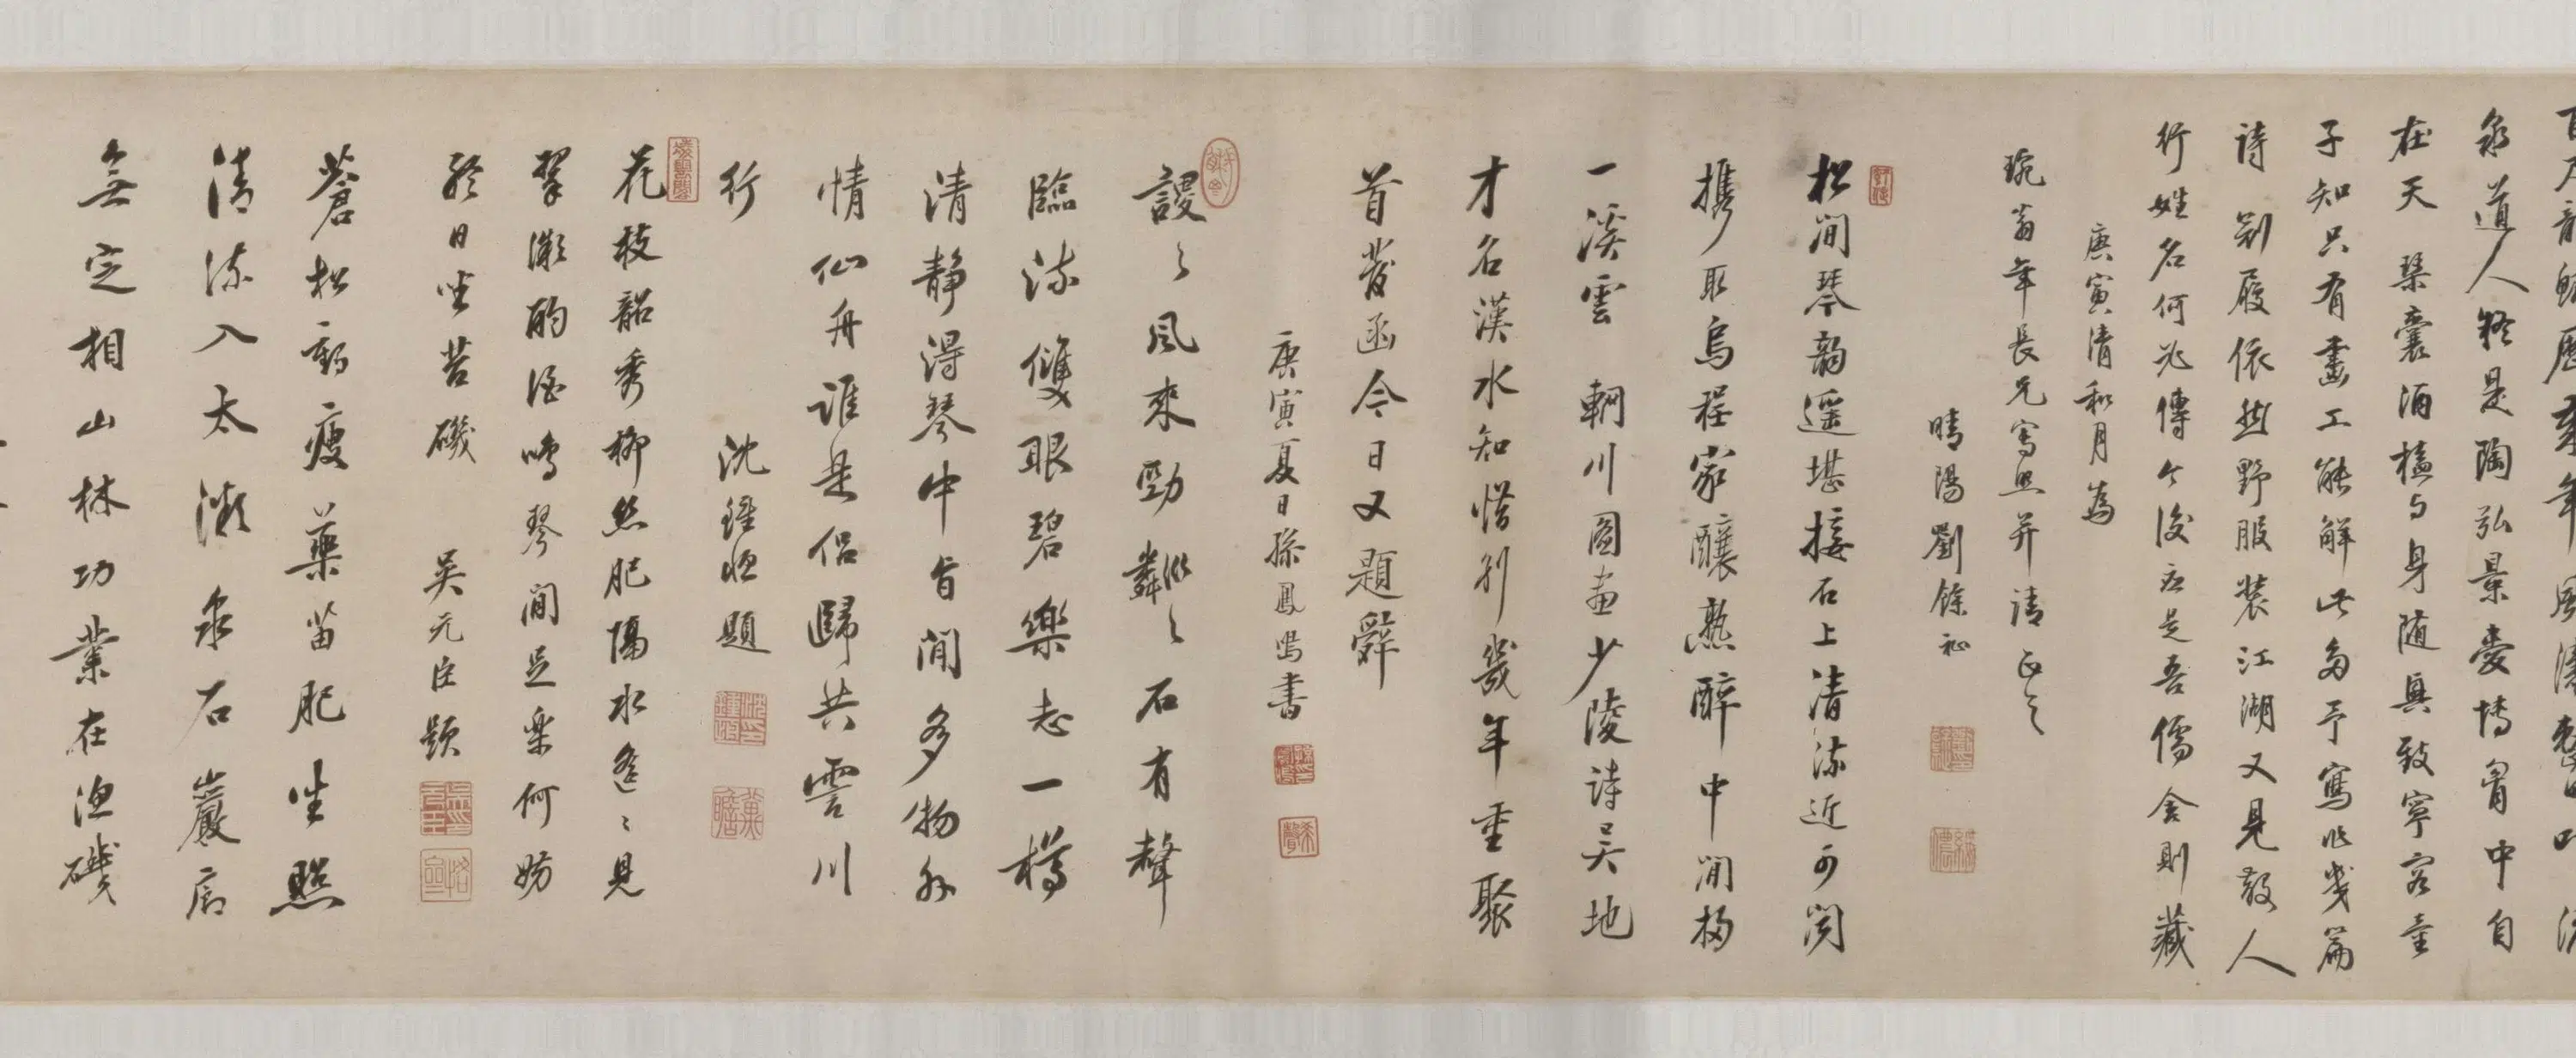 泉道人疑是陶弘景壺博胷中自
在天琹囊酒榼与身随興致寧容童
子知只有畫工能解此多予寫作幾篇
詩 芻屐依然野服裝江湖又見散人
行姓名何必傳今後應是吾儒舍則藏
庚寅清和月為
琬翁年長兄寫照并請正之
晴陽劉餘祉
松間琴韵遥堪接石上清流近可閱
攜取烏程家釀熟醉中閒掃
一溪雲 輞川圖畫少陵詩吴地
才名漢水知惜别幾年重聚
首發函今日又題辭
庚寅夏日孫鳳鳴書
謖々風來勁粼々石有聲
臨流雙眼碧樂志一樽
清静得琴中旨閒多物外
情仙舟誰是侣歸共霅川
行
沈鍾 題
花枝韶秀柳絲肥隔水遙々見
翠微酌酒鳴琴閒足樂何妨
終日坐苔磯
吴元臣題
蒼松勁瘦藥苗肥坐照
清流入太微泉石巖扃
無定相山林功業在漁磯